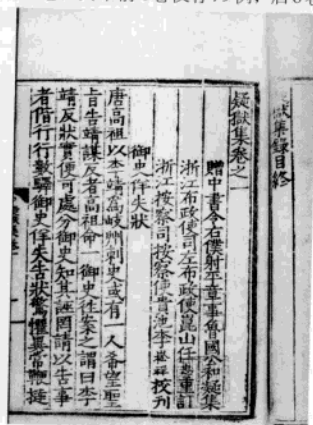 獄集錄目終
疑獄集卷之一
贈中書令右僕射平章事魯國公和凝集
浙江布政使司左布政使崑山任重訂
浙江按察司按察使貴池李崧祥校刊
御史佯失狀
唐高祖以李靖爲岐州刺史或有一人希望聖
旨告靖謀反者高祖命一御史往案之謂曰李
靖反狀實便可處分御史知其誣罔請以告事
者偕行行數驛御史佯失告狀驚懼異常鞭撻